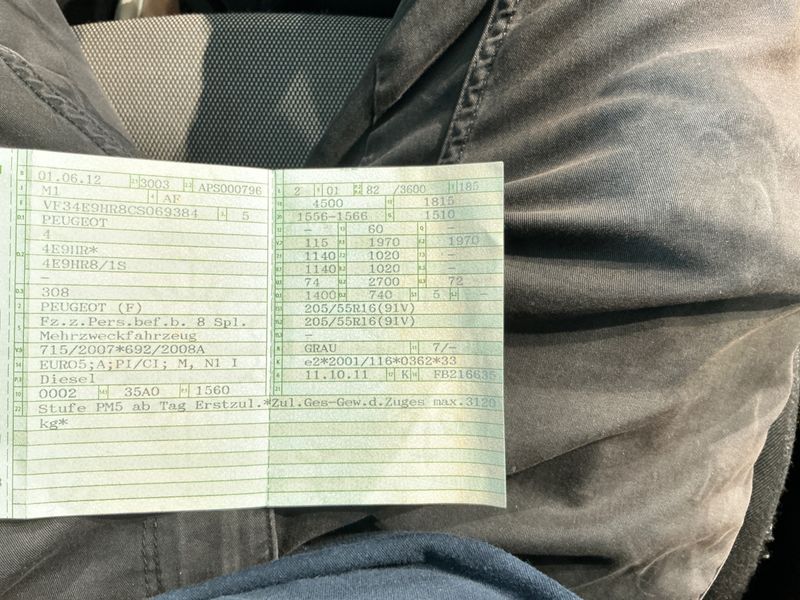 01.06.12 3003 APS000796
M1 AF
VF34E9HR8CS069384 5
PEUGEOT
4
4E9HR*
4E9HR8/1S
–
308
PEUGEOT (F)
Fz.z.Pers.bef.b. 8 Spl.
Mehrzweckfahrzeug
715/2007*692/2008A
EURO5;A;PI/CI; M, N1 I
Diesel
0002 35A0 1560
Stufe PM5 ab Tag Erstzul.*Zul.Ges-Gew.d.Zuges max.3120
kg*
2 01 82 /3600 185
4500 1815
1556-1566 1510
– 60 –
115 1970 1970
1140 1020 –
1140 1020 –
74 2700 72
1400 740 5 –
205/55R16(91V)
205/55R16(91V)
–
GRAU 7/–
e2*2001/116*0362*33
11.10.11 K FB216635